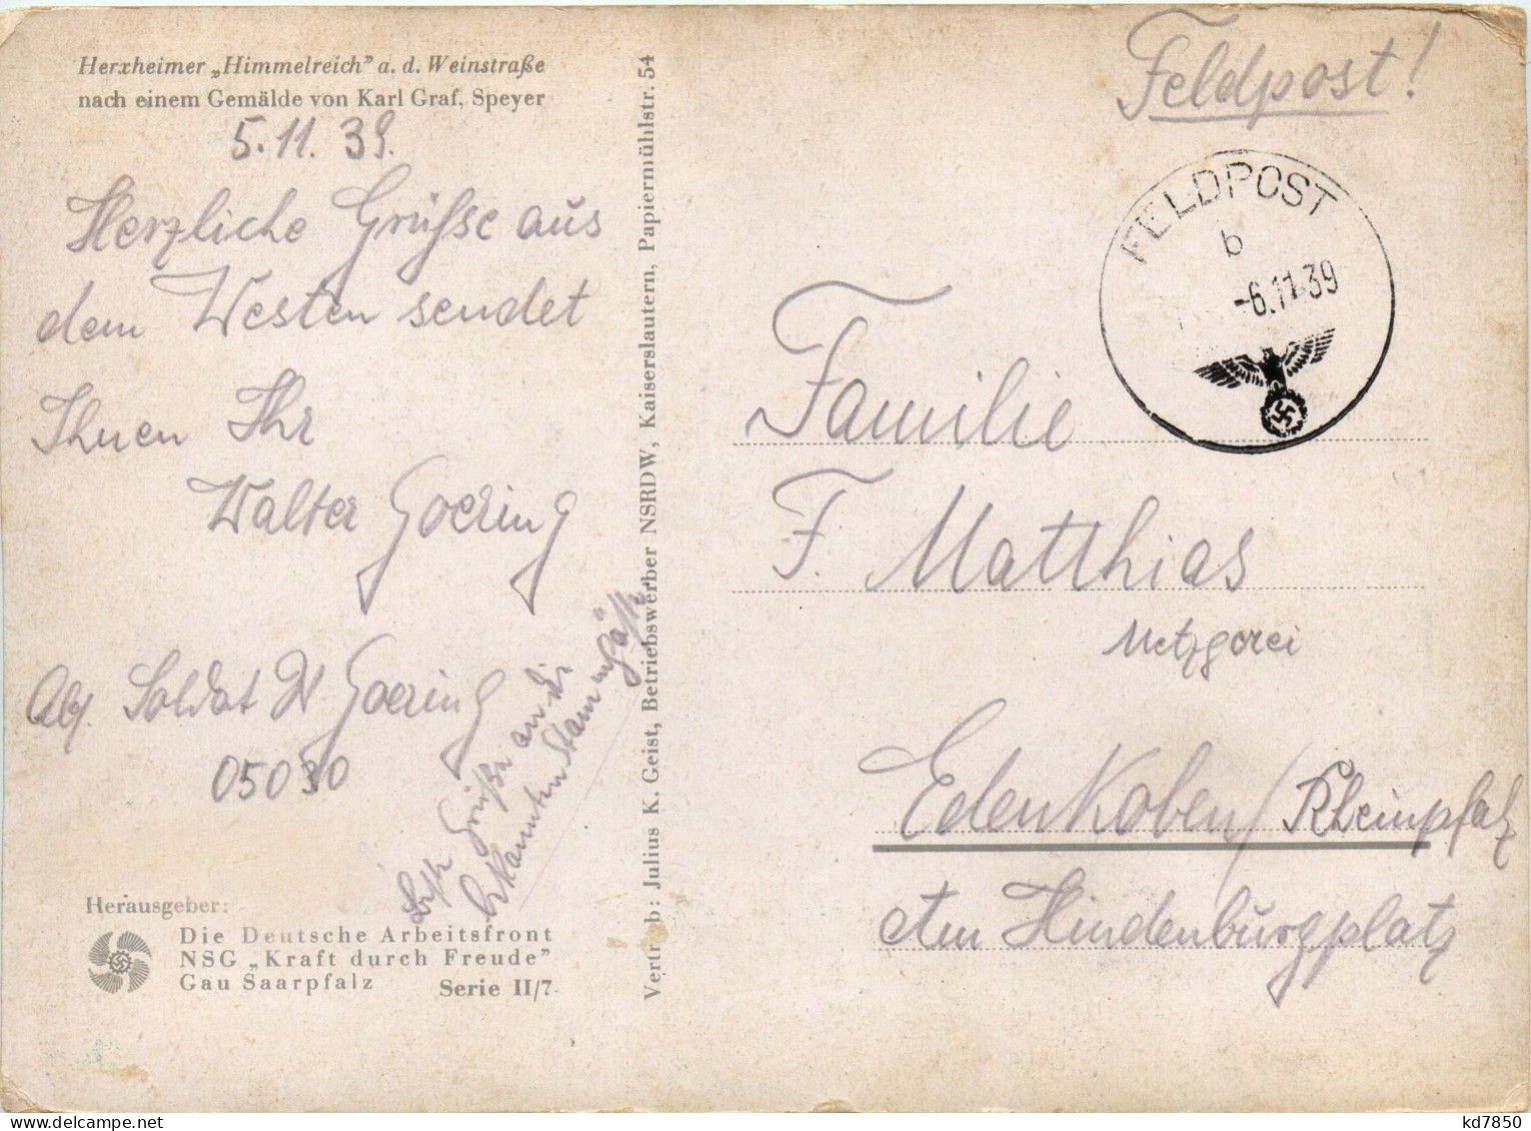 Herxheimer „Himmelreich" a. d. Weinstraße
nach einem Gemälde von Karl Graf, Speyer
5.11.39.
Herzliche Grüsse aus
dem Westen sendet
Ihnen Ihr
Walter Goering
Abs. Soldat W Goering
05030
Beste Grüße an die
bekannten Stammgäste
Herausgeber:
Die Deutsche Arbeitsfront
NSG „Kraft durch Freude"
Gau Saarpfalz
Serie II/7
Vertrieb: Julius K. Geist, Betriebswerber NSRDW, Kaiserslautern, Papiermühlstr. 54
Feldpost!
FELDPOST
b
-6.11.39
Familie
F. Matthias
Metzgerei
Edenkoben/Rheinpfalz
Am Hindenburgplatz
kd7850